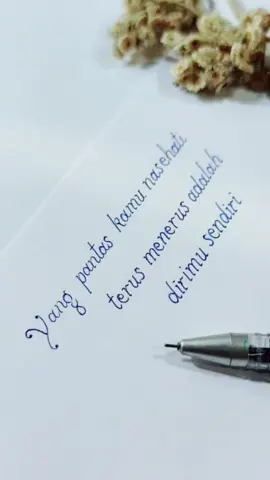 Yang pantas kamu nasehati
terus menerus adalah
dirimu sendiri